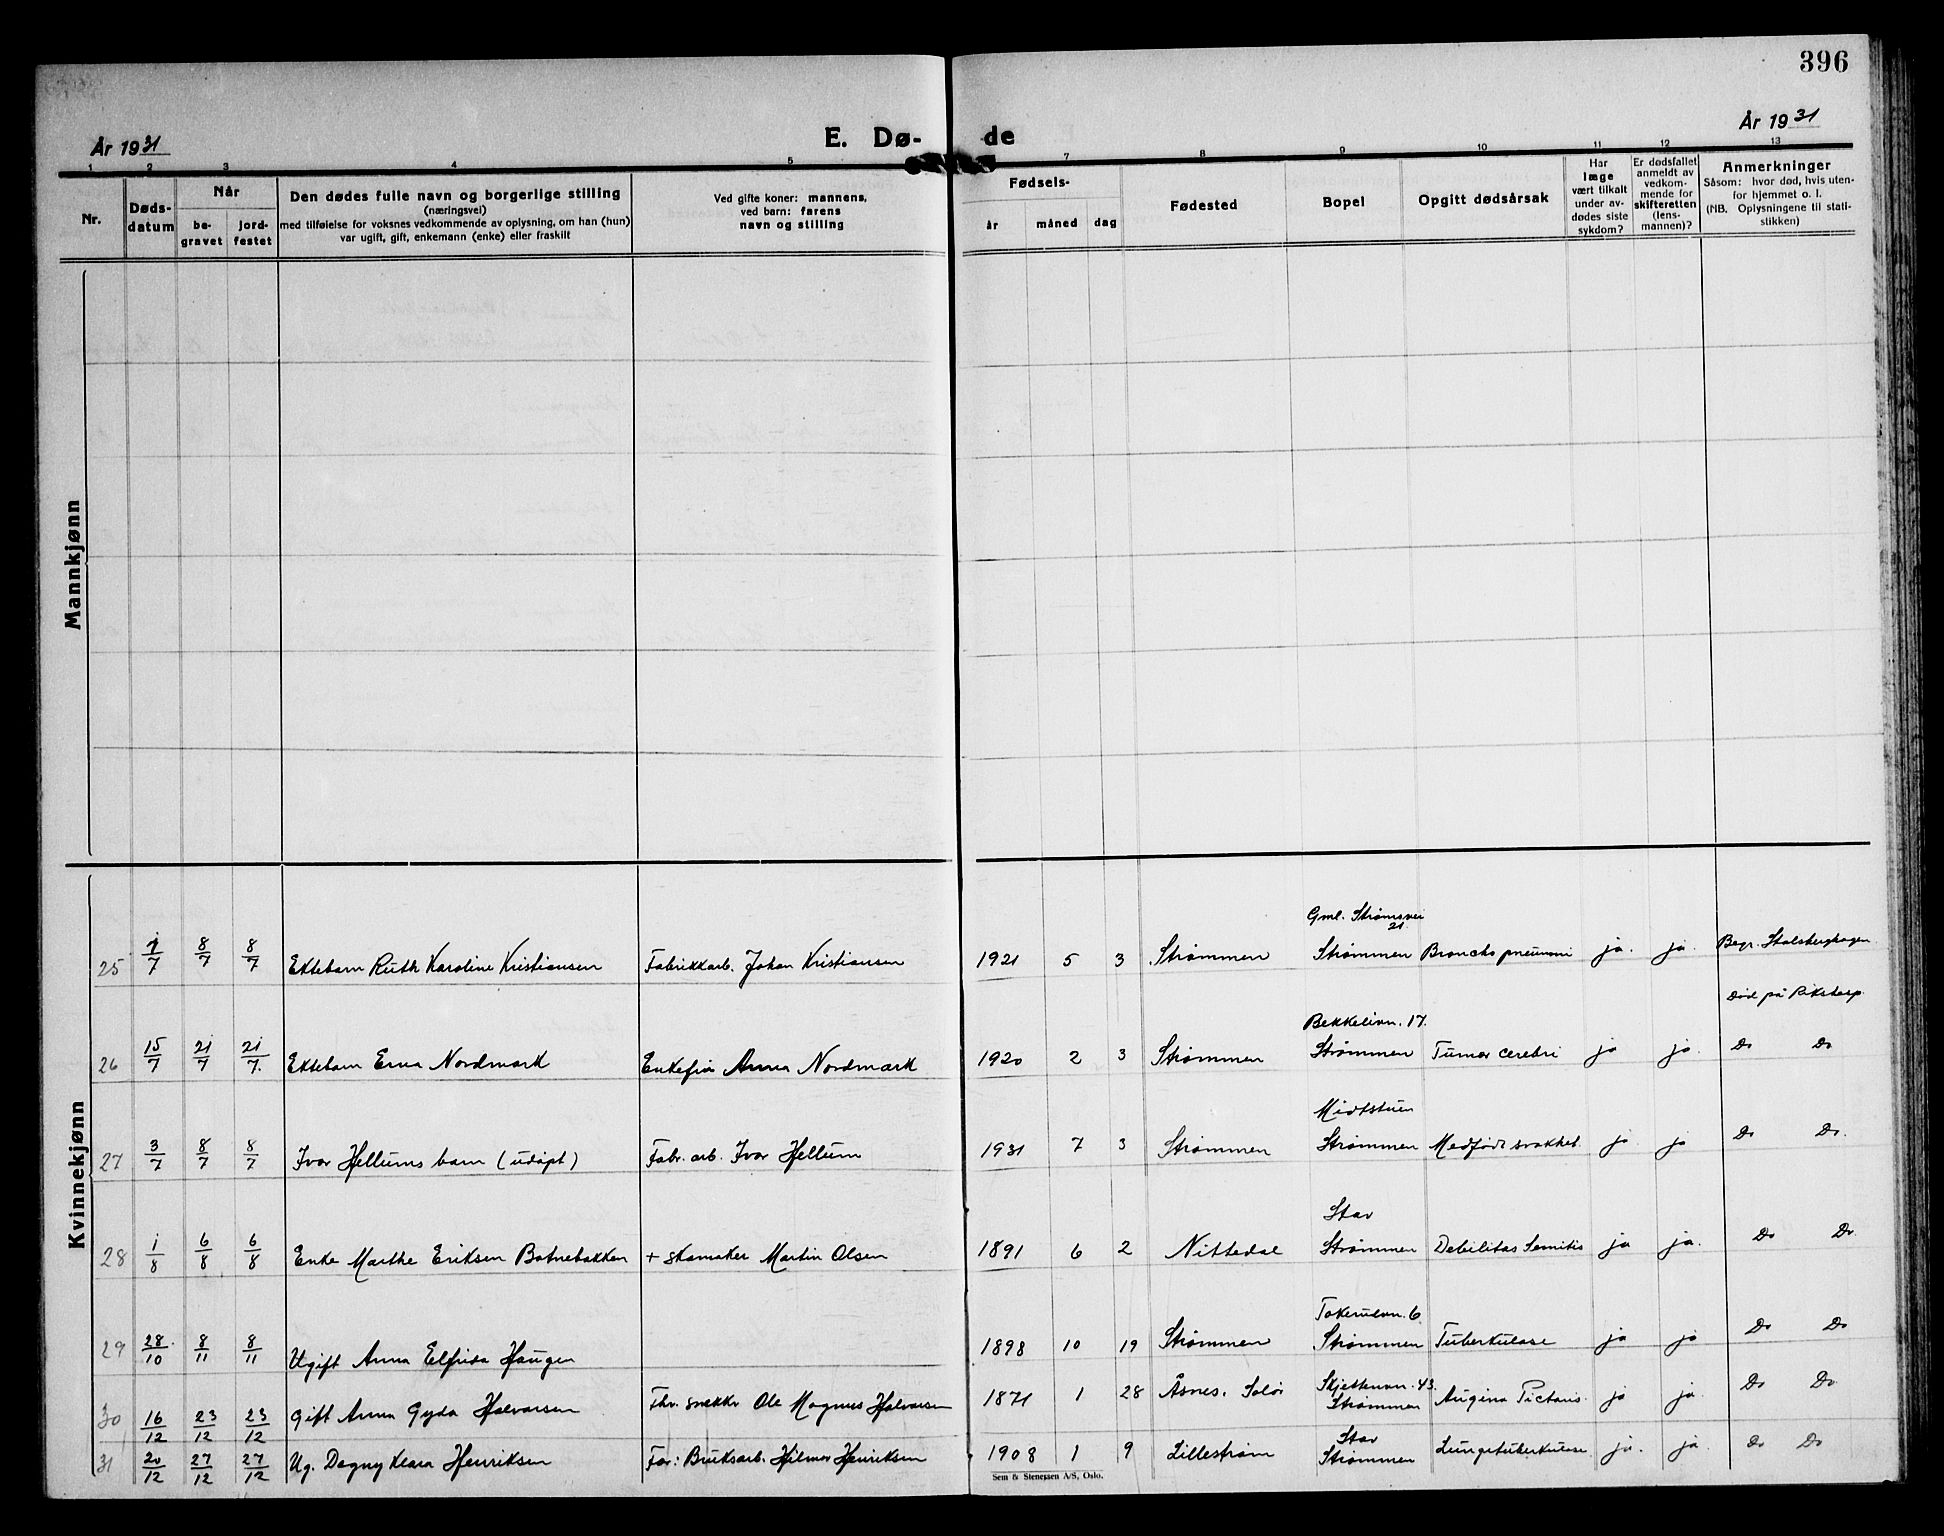 396
År 1931
E. Dø-
de
År 1931
1 2 3 4 5 7 8 9 10 11 12 13
Nr.
Døds-
datum
Når
be-
gravet
jord-
festet
Den dødes fulle navn og borgerlige stilling
(næringsvei)
med tilføielse for voksnes vedkommende av oplysning, om han (hun)
var ugift, gift, enkemann (enke) eller fraskilt
Ved gifte koner: mannens,
ved barn: farens
navn og stilling
Fødsels-
år måned dag
Fødested
Bopel
Opgitt dødsårsak
Har
læge
vært tilkalt
under av-
dødes siste
sykdom?
Er dødsfallet
anmeldt av
vedkom-
mende for
skifteretten
(lens-
mannen)?
Anmerkninger
Såsom: hvor død, hvis uten-
for hjemmet o. l.
(NB. Oplysningene til stati-
stikken)
Mannkjønn
Kvinnekjønn
Gml. Strømsvei
21.
25 1/7 8/7 8/7 Ektebarn Ruth Karoline Kristiansen Fabrikkarb. Johan Kristiansen 1921 5 3 Strømmen Strømmen Bronchopneumoni ja. ja. Begr. Stalsberghagen
Død på Rikshosp.
Bekkelivn. 17.
26 15/7 21/7 21/7. Ektebarn Erna Nordmark Enkefru Anna Nordmark 1920 2 3 Strømmen Strømmen Tumor cerebri ja ja. Do Do
Midtstuen
27 3/7 8/7 8/7 Ivar Hellums barn (udøpt) Fabr. arb. Ivar Hellum 1931 7 3 Strømmen Strømmen Medfødt svakhet. ja ja Do Do.
Stav
28 1/8 6/8 6/8 Enke Marthe Eriksen Botnebakken + skomaker Martin Olsen 1891 6 2 Nittedal Strømmen Debilitas ja ja. Do Do.
6.
29 28/10 8/11 8/11 Ugift Anna Elfrida Haugen 1898 10 19 Strømmen Strømmen Tuberkulose ja ja Do Do
Skjettenvn. 43.
30 16/12 23/12 23/12 Gift Anna Gyda Halvorsen Fhv. snekker Ole Magnus Halvorsen 1871 1 28 Åsnes. Solør Strømmen Angina Pictoris ja ja. Do Do
Stav
31 20/12 27/12 27/12 Ug. Dagny Klara Henriksen Far: Bruksarb. Hilmar Henriksen 1908 1 9 Lillestrøm Strømmen Lungetuberkulose ja. ja. Do Do
Sem & Stenersen A/S, Oslo.